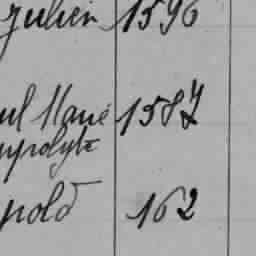 Julien 1596
ul Marie 1587
ypolyte
pold 162